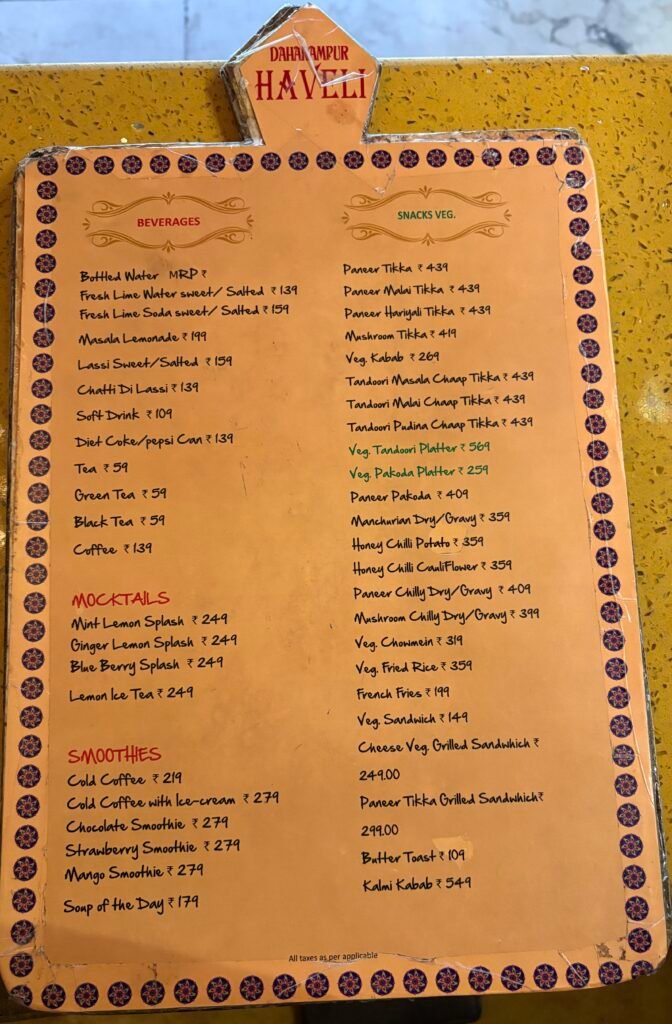 DAHARAMPUR
HAVELI
BEVERAGES
Bottled Water MRP ₹
Fresh Lime Water sweet/ Salted ₹ 139
Fresh Lime Soda sweet/ Salted ₹ 159
Masala Lemonade ₹ 199
Lassi Sweet/Salted ₹ 159
Chatti Di Lassi ₹ 139
Soft Drink ₹ 109
Diet Coke/pepsi Can ₹ 139
Tea ₹ 59
Green Tea ₹ 59
Black Tea ₹ 59
Coffee ₹ 139
MOCKTAILS
Mint Lemon Splash ₹ 249
Ginger Lemon Splash ₹ 249
Blue Berry Splash ₹ 249
Lemon Ice Tea ₹ 249
SMOOTHIES
Cold Coffee ₹ 219
Cold Coffee with Ice-cream ₹ 279
Chocolate Smoothie ₹ 279
Strawberry Smoothie ₹ 279
Mango Smoothie ₹ 279
Soup of the Day ₹ 179
SNACKS VEG.
Paneer Tikka ₹ 439
Paneer Malai Tikka ₹ 439
Paneer Hariyali Tikka ₹ 439
Mushroom Tikka ₹ 419
Veg. Kabab ₹ 269
Tandoori Masala Chaap Tikka ₹ 439
Tandoori Malai Chaap Tikka ₹ 439
Tandoori Pudina Chaap Tikka ₹ 439
Veg. Tandoori Platter ₹ 569
Veg. Pakoda Platter ₹ 259
Paneer Pakoda ₹ 409
Manchurian Dry/Gravy ₹ 359
Honey Chilli Potato ₹ 359
Honey Chilli CauliFlower ₹ 359
Paneer Chilly Dry/Gravy ₹ 409
Mushroom Chilly Dry/Gravy ₹ 399
Veg. Chowmein ₹ 319
Veg. Fried Rice ₹ 359
French Fries ₹ 199
Veg. Sandwich ₹ 149
Cheese Veg. Grilled Sandwhich ₹
249.00
Paneer Tikka Grilled Sandwhich₹
299.00
Butter Toast ₹ 109
Kalmi Kabab ₹ 549
All taxes as per applicable